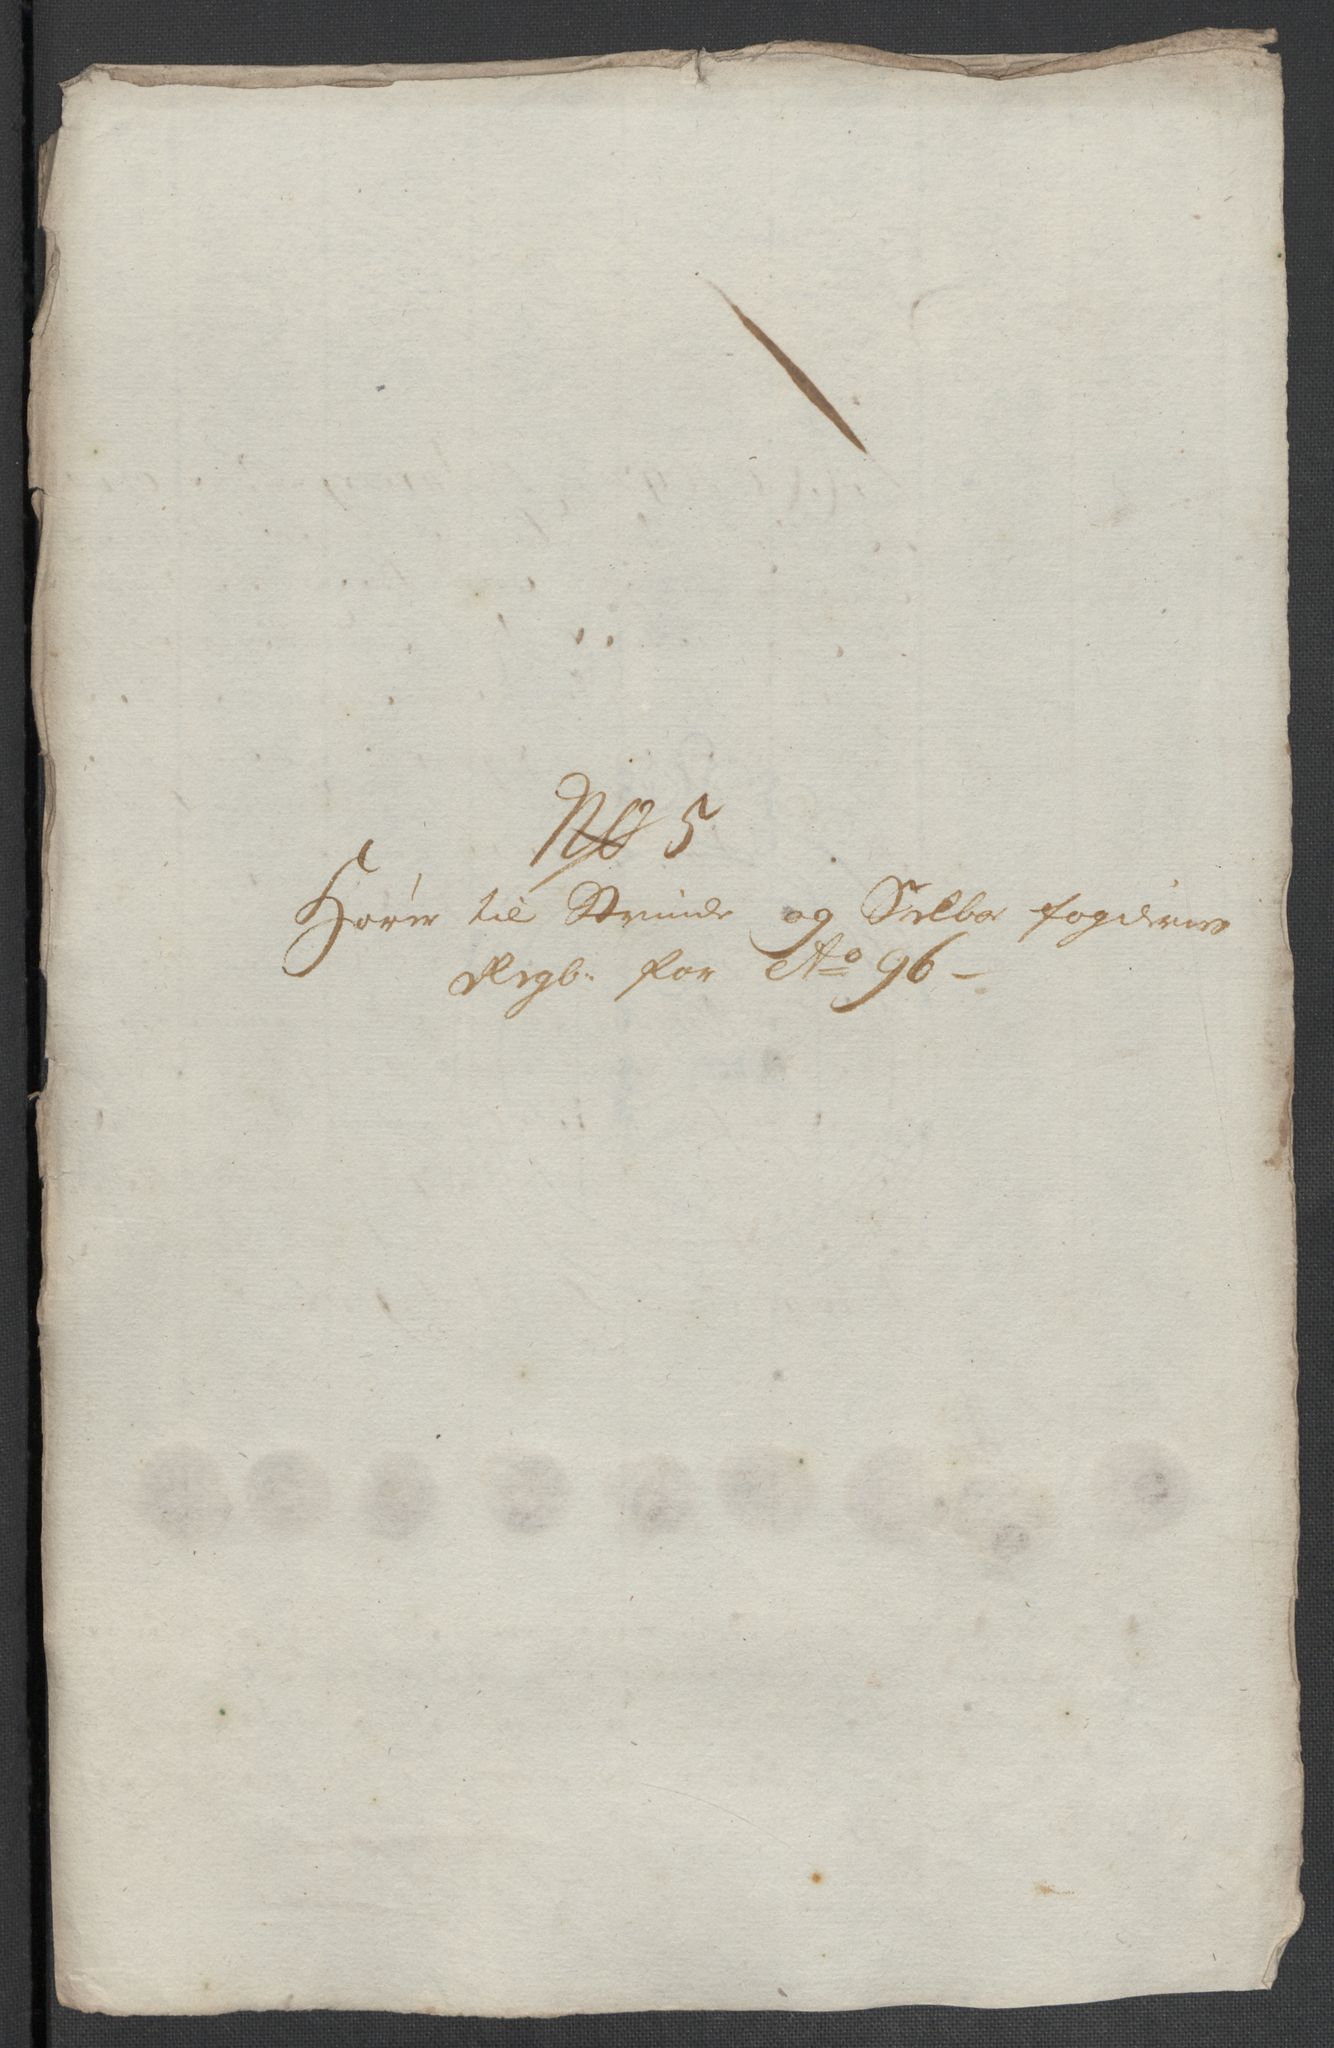 No 5
Hörer til Strinde og Selboe fogderies
Regb. for Ao 96 -